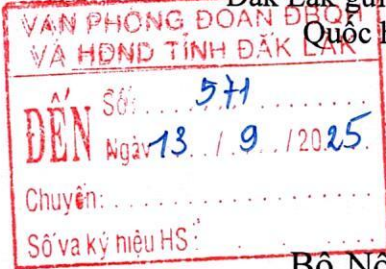 Đắk Lắk gửi
Quốc H
VĂN PHÒNG ĐOÀN ĐBQH
VÀ HĐND TỈNH ĐẮK LẮK
ĐẾN
Số: 571
Ngày 13 / 9 / 2025.
Chuyển:
Số và ký hiệu HS:
Bộ Nộ